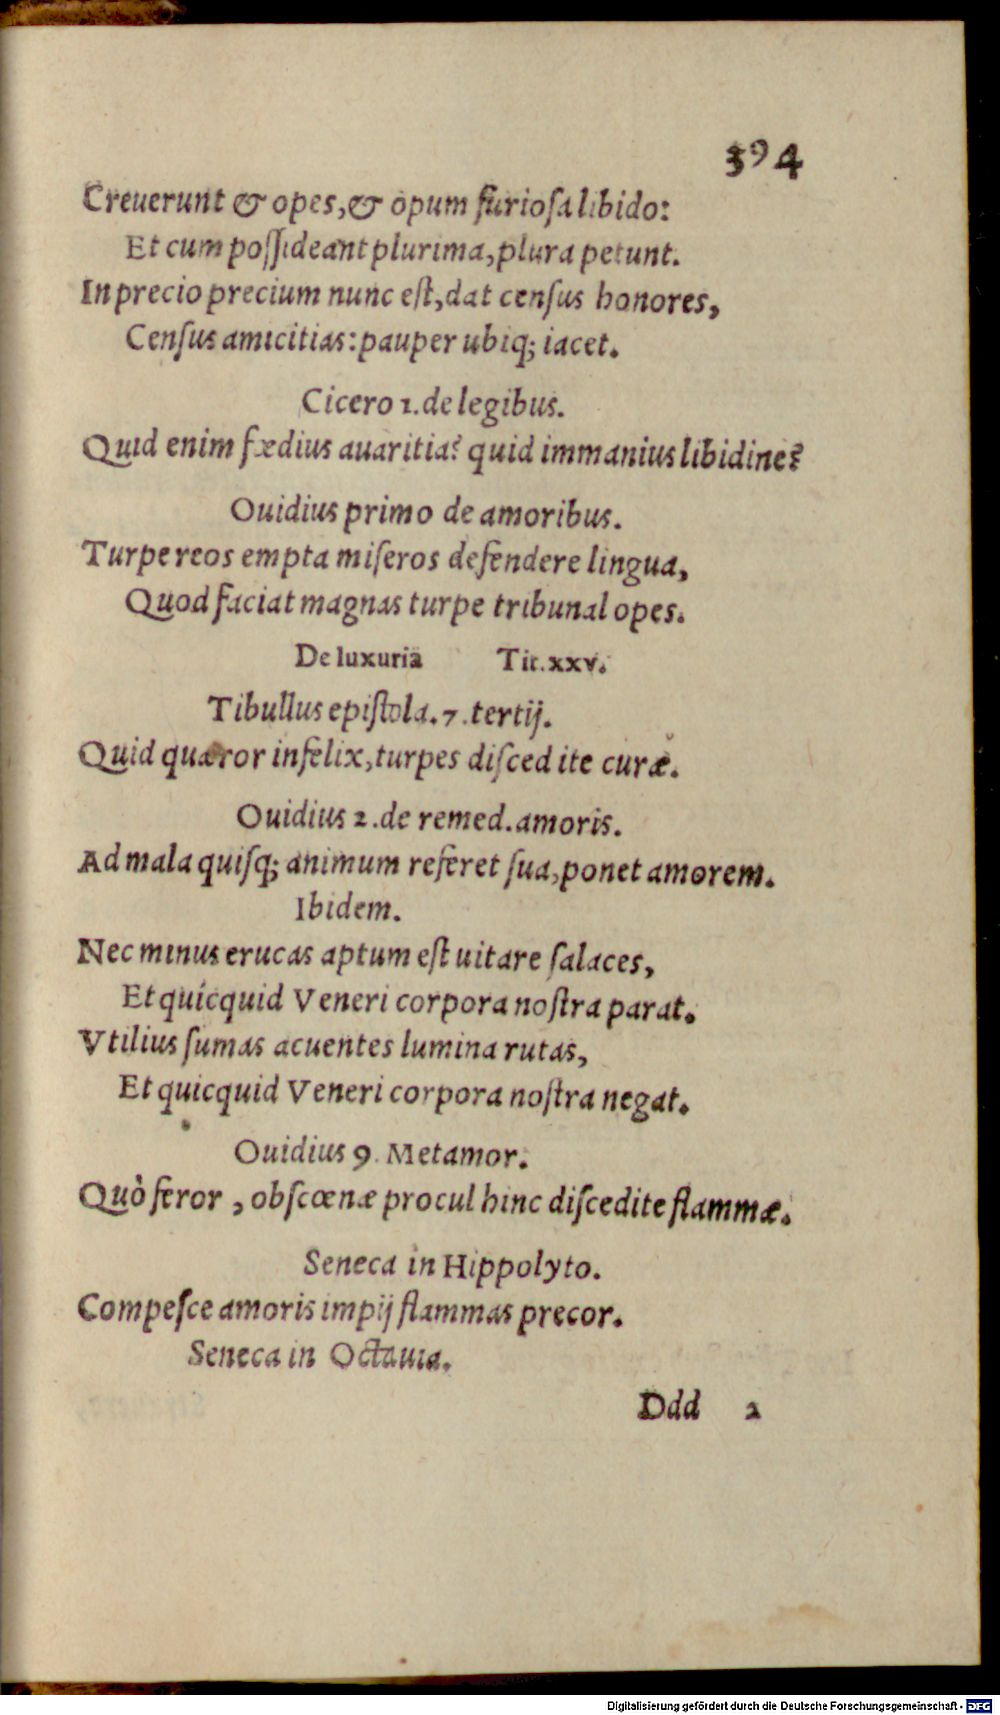 394
Creuerunt & opes, & opum furioſa libido:
Et cum poſſideant plurima, plura petunt.
In precio precium nunc eſt, dat cenſus honores,
Cenſus amicitias: pauper ubiq; iacet.
Cicero 1. de legibus.
Quid enim fœdius auaritia? quid immanius libidine?
Ouidius primo de amoribus.
Turpe reos empta miſeros defendere lingua,
Quod faciat magnas turpe tribunal opes.
De luxuria Tit. xxv.
Tibullus epiſtola. 7. tertij.
Quid quæror infelix, turpes diſcedite curæ.
Ouidius 2. de remed. amoris.
Ad mala quiſq; animum referet ſua, ponet amorem.
Ibidem.
Nec minus erucas aptum eſt uitare ſalaces,
Et quicquid Veneri corpora noſtra parat.
Vtilius ſumas acuentes lumina rutas,
Et quicquid Veneri corpora noſtra negat.
Ouidius 9. Metamor.
Quò feror, obſcœnæ procul hinc diſcedite flammæ.
Seneca in Hippolyto.
Compeſce amoris impij flammas precor.
Seneca in Octauia.
Ddd 2
Digitalisierung gefördert durch die Deutsche Forschungsgemeinschaft - DFG